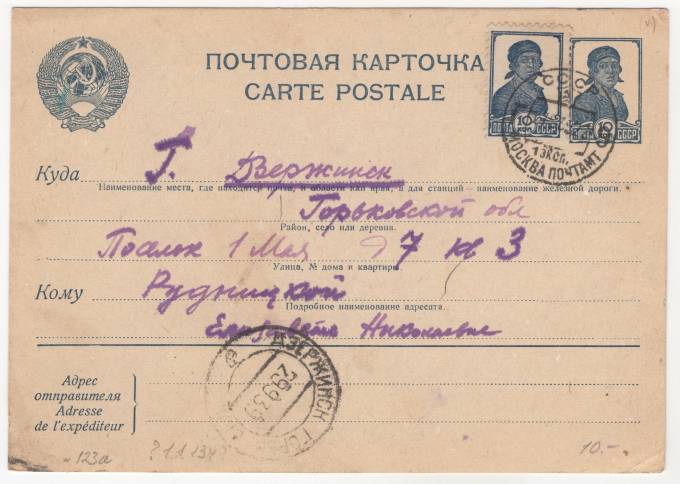 ПОЧТОВАЯ КАРТОЧКА
CARTE POSTALE
10
ПОЧТА СССР
10
СССР
МОСКВА ПОЧТАМТ
1 ЭКСП.
Куда
Г. Дзержинск
Наименование места, где находится почта, и области или края, а для станций — наименование железной дороги.
Горьковской обл
Район, село или деревня.
Поселок 1 Мая 7 кв 3
Улица, № дома и квартиры
Кому
Рудницкой
Подробное наименование адресата.
Елизавете Николаевне
ДЗЕРЖИНСК
Адрес
отправителя
Adresse
de l'expéditeur
123а
10.-